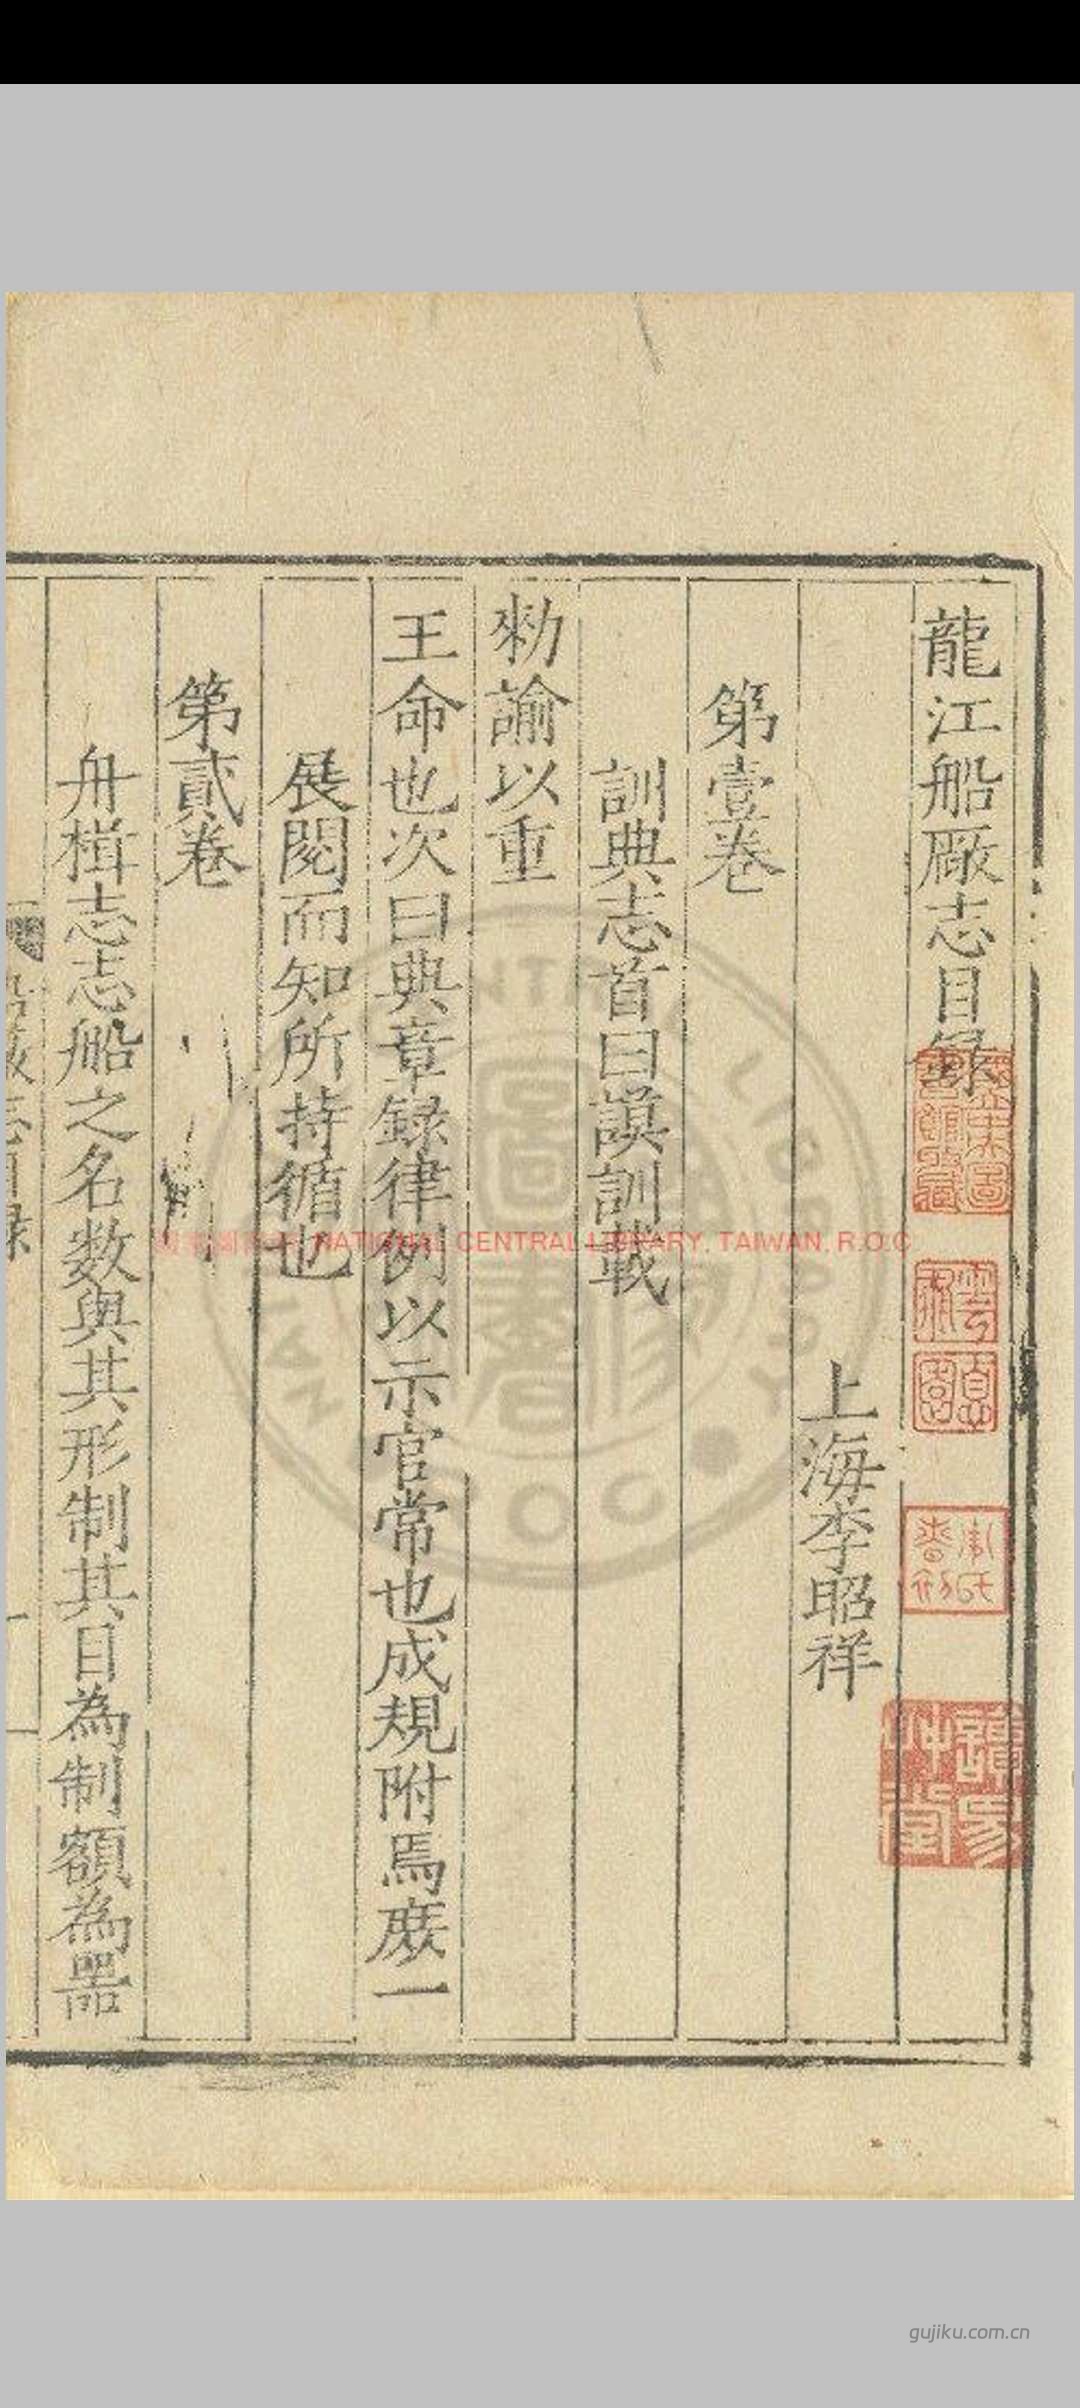 龍江船厰志目錄
上海李昭祥
第壹卷
訓典志首曰謨訓載
勑諭以重
王命也次曰典章錄律例以示官常也成規附焉庻一
展閱而知所持循也
第貳卷
舟楫志志船之名數與其形制其目為制額為噐
NATIONAL CENTRAL LIBRARY, TAIWAN, R.O.C
gujiku.com.cn